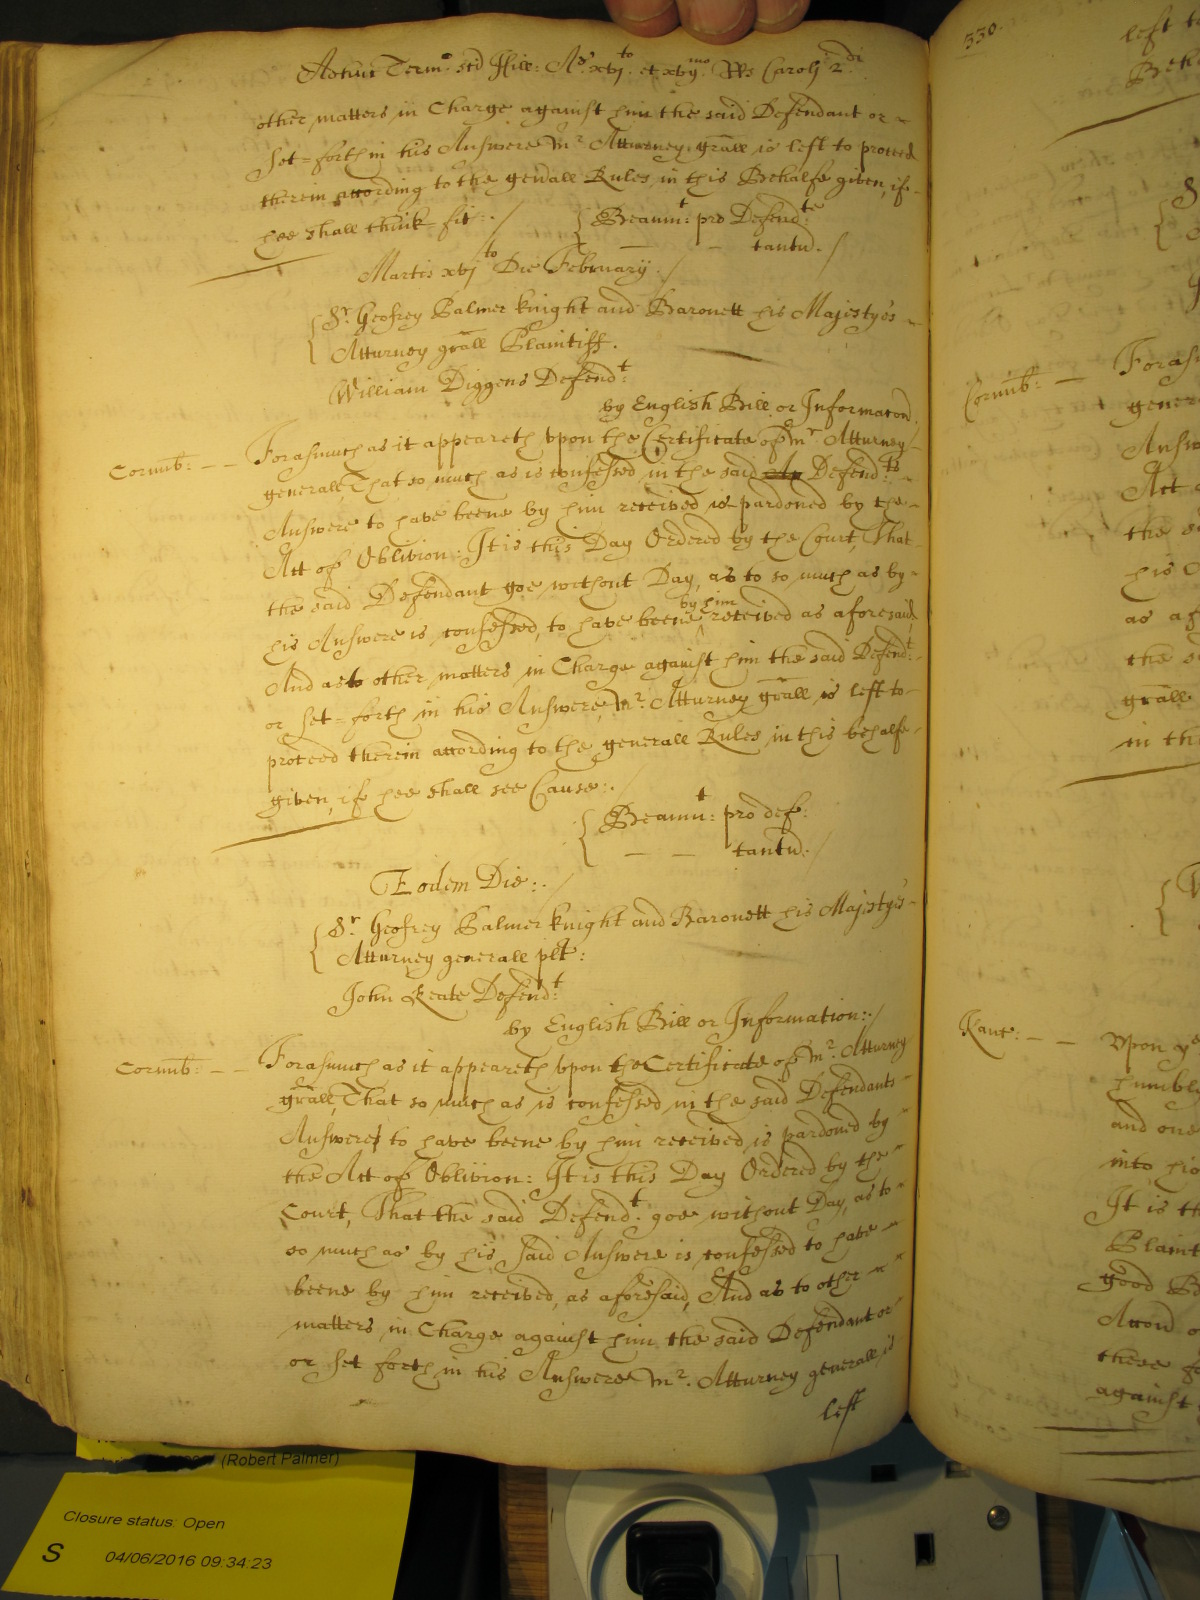 Adhuc Term.o sci Hill: A.o xvj.to et xvij.mo Rs Caroli 2.di
other matters in Charge against him the said Defendant or
set=forth in his Answere Mr. Atturney grall is left to proceed
therein according to the gen'all Rules in this Behalfe given, if
hee shall think fit:./
{Beaum.t: pro Defend.te
tantu./
Martis xvj.to Die February./
{Sr. Geofrey Palmer knight and Baronett his Majestyes
Atturney grall Plaintiff.
William Diggens Defend.t:
by English Bill or Informacon
Cornub: — — Forasmuch as it appeareth vpon the Certificate of Mr. Atturney
generall, That so much as is confessed in the said An Defend.ts
Answere to have beene by him received is pardoned by the
Act of Oblivion: It is this Day Ordered by the Court, That
the said Defendant goe without Day, as to so much as by
by him
his Answere is confessed, to have beene ^ received as aforesaid,
And as to other matters in Charge against him the said Defend.t:
or set=forth in his Answere, Mr. Atturney grall is left to
proceed therein according to the generall Rules in this behalfe
given, if hee shall see Cause:./
{Beaum.t: pro def:
— — tantu./
Eodem Die:./
{Sr. Geofrey Palmer knight and Baronett his Majestyes
Atturney generall plt:
John Keate Defend.t
by English Bill or Information:./
Cornub: — — Forasmuch as it appeareth vpon the Certificate of Mr. Atturney
grall, That so much as is confessed in the said Defendants
Answere to have beene by him received, is pardoned by
the Act of Oblivion: It is this Day Ordered by the
Court, That the said Defend.t: goe without Day, as to
so much as by his said Answere is confessed to have
beene by him received, as aforesaid, And as to other
matters in Charge against him the said Defendant or
or set forth in his Answere Mr. Atturney generall is
left
330.
left to
Beha
Cornub: — Foras
gener
Answ
Act o
the s
his A
as af
the s
grall
in th
Kanc: — — Vpon ye
humbly
and one
into his
It is th
Plaint
good B
these
against
(Robert Palmer)
Closure status: Open
S 04/06/2016 09:34:23